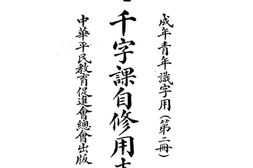 成年青年識字用(第二冊)
千字課自修用
中華平民教育促進會總會出版